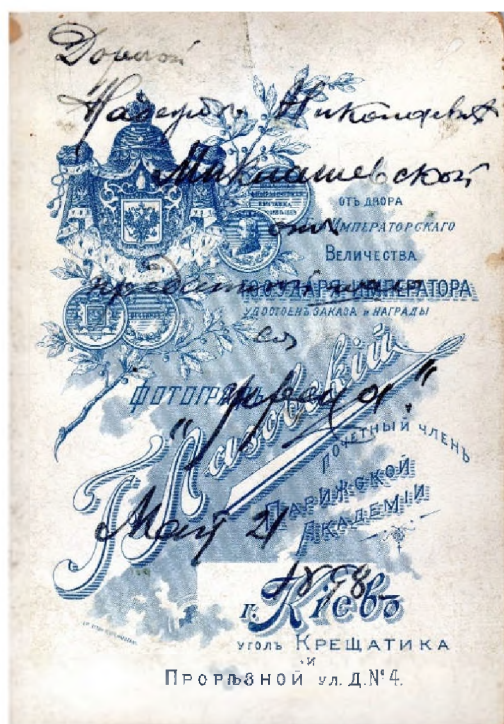 Дорогой
Надеждѣ Николаевнѣ
Миклашевской
отъ
ОТЪ ДВОРА
ИМПЕРАТОРСКАГО
ВЕЛИЧЕСТВА
ГОСУДАРЯ ИМПЕРАТОРА
УДОСТОЕНЪ ЗАКАЗА И НАГРАДЫ
ФОТОГРАФЪ
ПОЧЕТНЫЙ ЧЛЕНЪ
ПАРИЖСКОЙ
АКАДЕМІИ
Май 21
1898
г. Кіевъ
УГОЛЪ КРЕЩАТИКА
И
ПРОРѢЗНОЙ УЛ. Д. № 4.